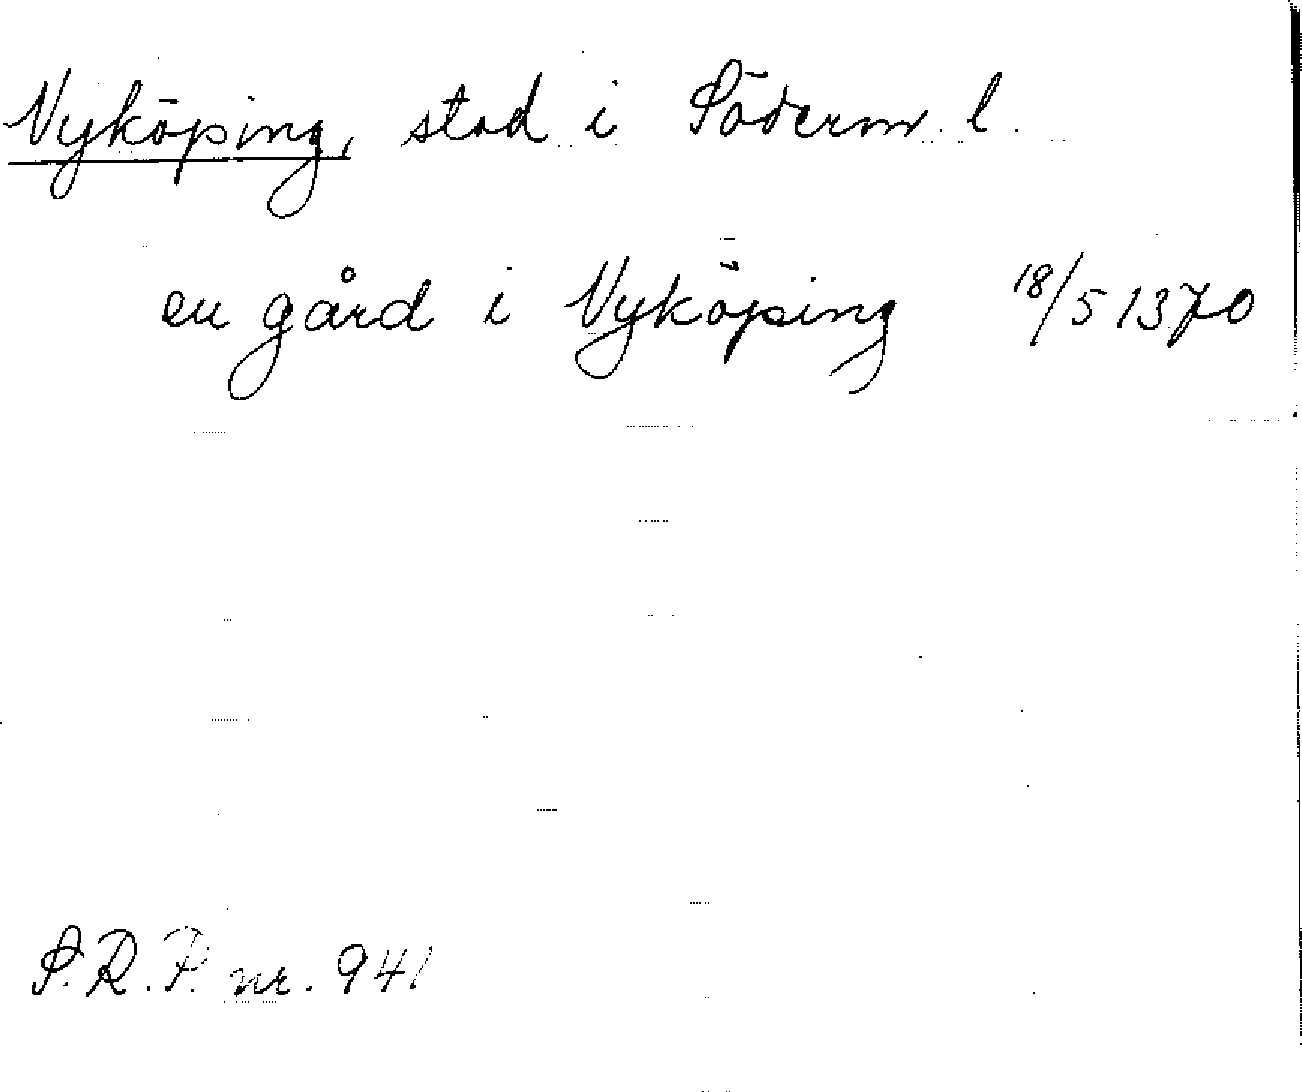 Nyköping, stad i Söderm. l.
en gård i Nyköping 18/5 1370
S.R.P. nr. 941